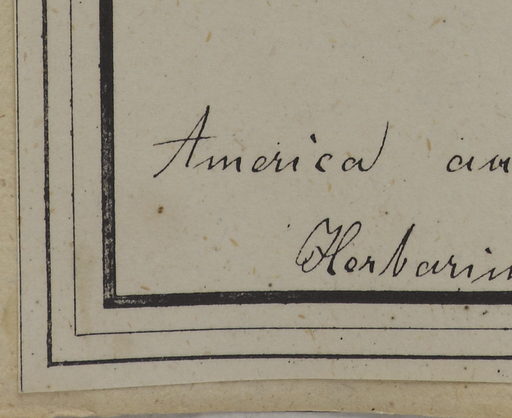 America au
Herbariu